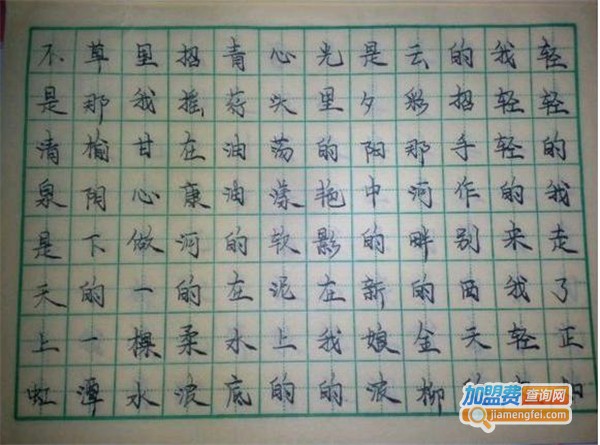 轻轻的我走了正
我轻轻的来我轻
的招手作别西天
云彩那河畔的金柳
是夕阳中的新娘波
光里的艳影在我的
心头荡漾软泥上的
青荇油油的在水底
招摇在康河的柔波
里我甘心做一棵水
草那榆阴下的一潭
不是清泉是天上虹
加盟费查询网
jiamengfei.com